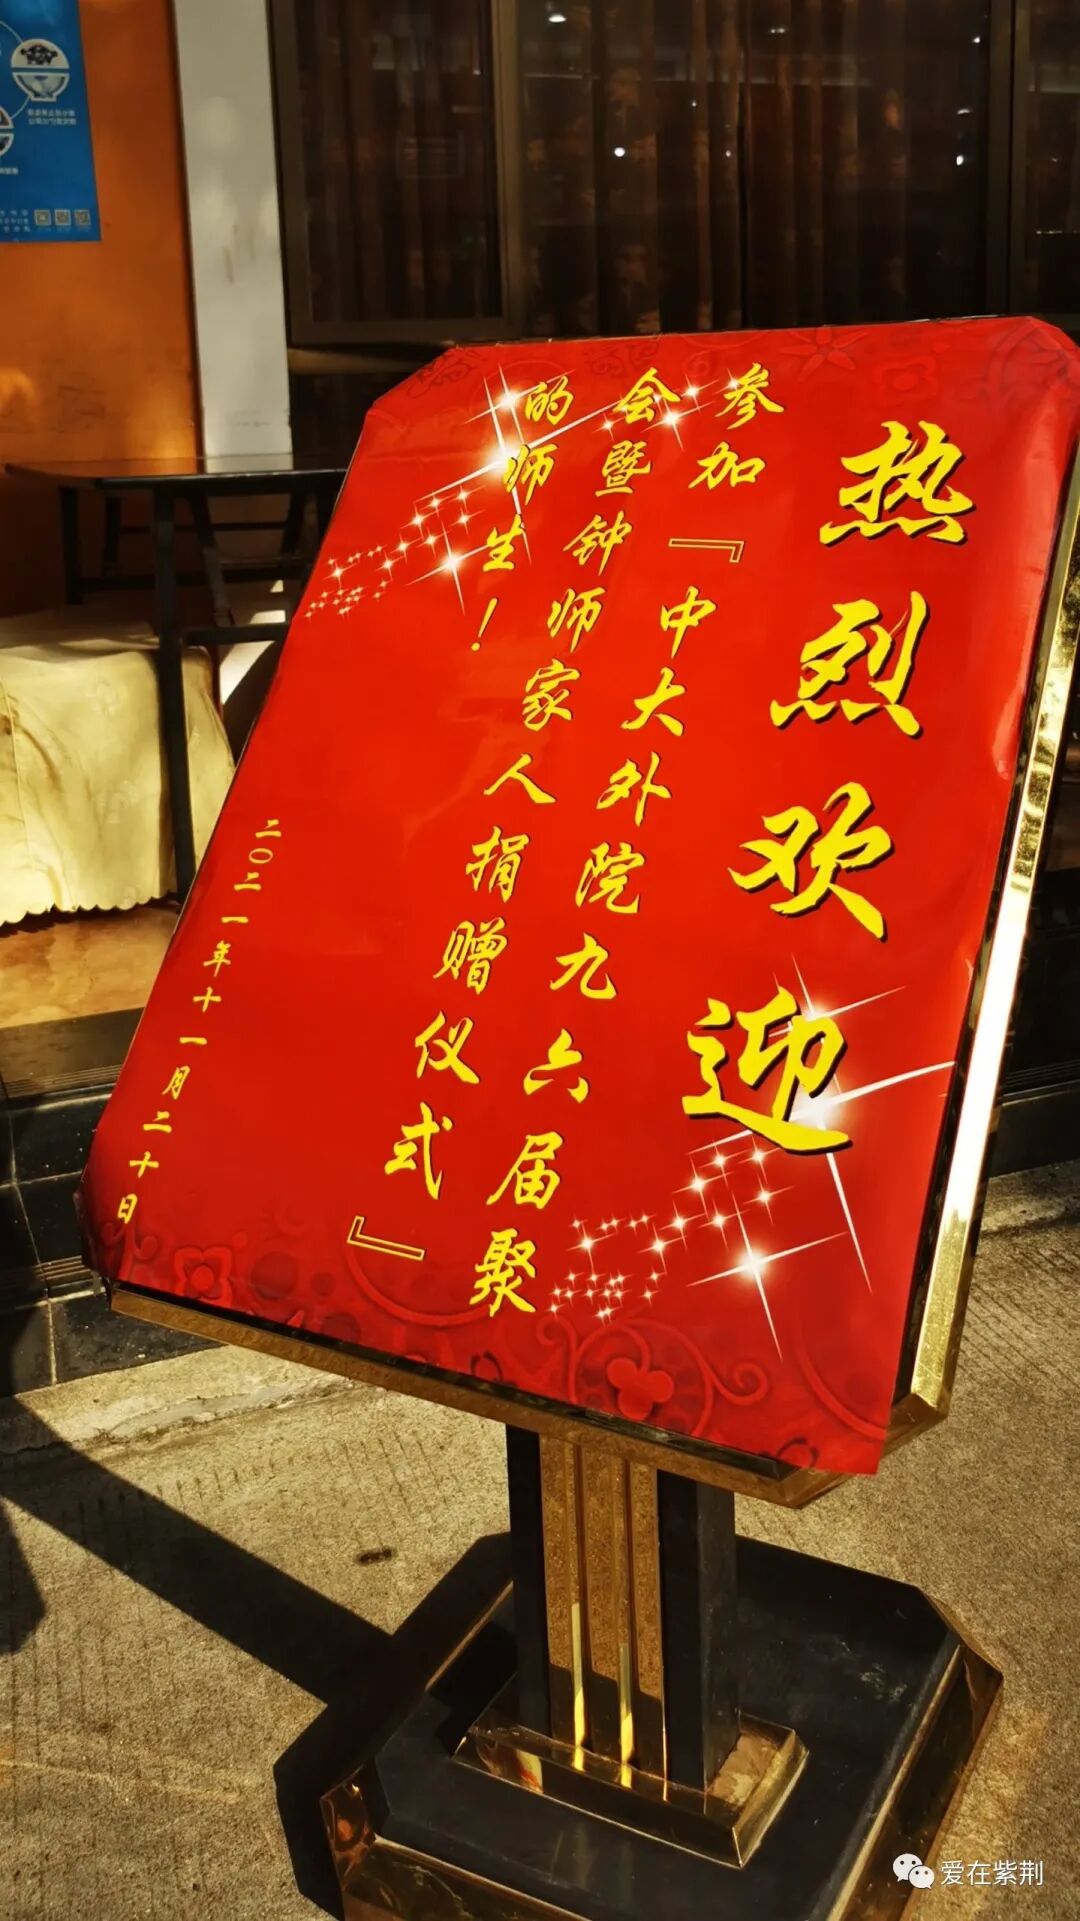 热烈欢迎
参加『中大外院九六届聚
会暨钟师家人捐赠仪式』
的师生！
二〇二一年十一月二十日
爱在紫荆